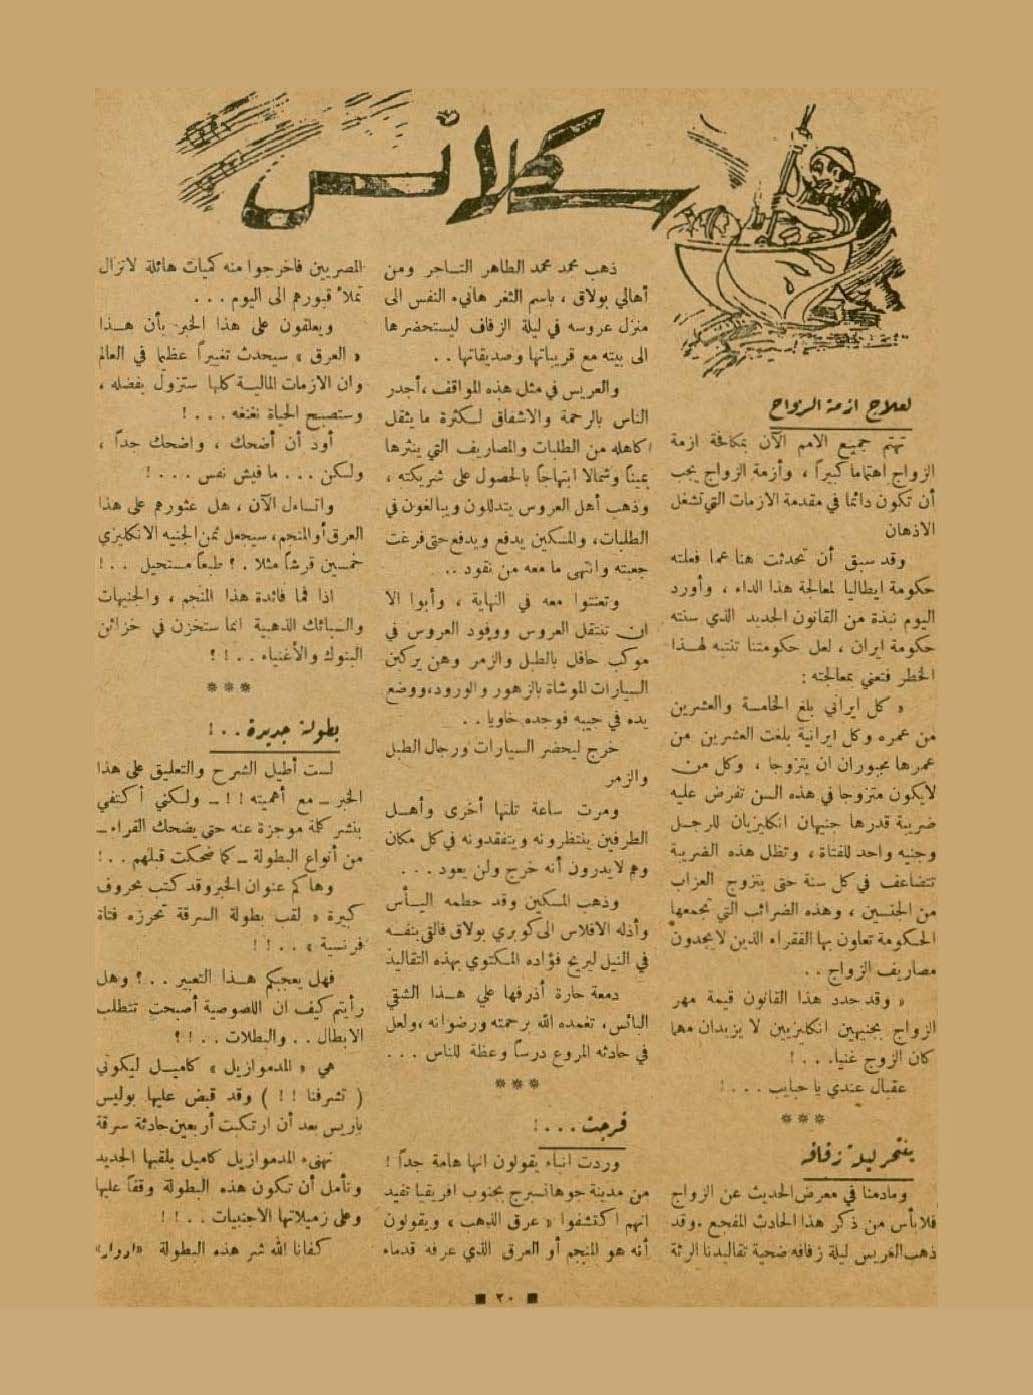 سكلانس
لعلاج ازمة الزواج
تهتم جميع الامم الآن بمكافحة ازمة
الزواج اهتماما كبيراً ، وأزمة الزواج يجب
أن تكون دائما في مقدمة الازمات التي تشغل
الاذهان
وقد سبق أن تحدثت هنا عما فعلته
حكومة ايطاليا لمعالجة هذا الداء ، وأورد
اليوم نبذة من القانون الجديد الذي سنته
حكومة ايران ، لعل حكومتنا تنتبه لهذا
الخطر فتعني بمعالجته :
« كل ايراني بلغ الخامسة والعشرين
من عمره وكل ايرانية بلغت العشرين من
عمرها مجبوران ان يتزوجا ، وكل من
لايكون متزوجا في هذه السن تفرض عليه
ضريبة قدرها جنيهان انكليزيان للرجل
وجنيه واحد للفتاة ، وتظل هذه الضريبة
تتضاعف في كل سنة حتى يتزوج العزاب
من الجنسين ، وهذه الضرائب التي تجمعها
الحكومة تعاون بها الفقراء الذين لايجدون
مصاريف الزواج . .
« وقد حدد هذا القانون قيمة مهر
الزواج بجنيهين انكليزيين لا يزيدان مهما
كان الزوج غنيا. . . !
عقبال عندي يا حبايب . . . !
***
ينتحر ليلة زفافه
ومادمنا في معرض الحديث عن الزواج
فلا بأس من ذكر هذا الحادث المفجع . وقد
ذهب العريس ليلة زفافه ضحية تقاليدنا الرثة
ذهب محمد محمد الطاهر التاجر ومن
أهالي بولاق ، باسم الثغر هانىء النفس الى
منزل عروسه في ليلة الزفاف ليستحضرها
الى بيته مع قريباتها وصديقاتها . .
والعريس في مثل هذه المواقف ، أجدر
الناس بالرحمة والاشفاق لكثرة ما يثقل
كاهله من الطلبات والمصاريف التي ينثرها
يميناً وشمالا ابتهاجاً بالحصول على شريكته ،
وذهب أهل العروس يتدللون ويبالغون في
الطلبات، والمسكين يدفع ويدفع حتى فرغت
جعبته وانتهى ما معه من نقود . .
وتعنتوا معه في النهاية ، وأبوا الا
ان تنتقل العروس ووفود العروس في
موكب حافل بالطبل والزمر وهن يركبن
السيارات الموشاة بالزهور والورود،ووضع
يده في جيبه فوجده خاويا . .
خرج ليحضر السيارات ورجال الطبل
والزمر
ومرت ساعة تلتها أخرى وأهل
الطرفين ينتظرونه ويتفقدونه في كل مكان
وهم لايدرون أنه خرج ولن يعود . . .
وذهب المسكين وقد حطمه اليأس
وأذله الافلاس الى كوبري بولاق فالقى بنفسه
في النيل ليريح فؤاده المكتوي بهذه التقاليد
دمعة حارة أذرفها على هذا الشقي
البائس ، تغمده الله برحمته ورضوانه ،ولعل
في حادثه المروع درساً وعظة للناس . . .
***
فرجت . . . !
وردت انباء يقولون انها هامة جداً !
من مدينة جوهانسبرج بجنوب افريقيا تفيد
انهم اكتشفوا « عرق الذهب » ويقولون
أنه هو المنجم أو العرق الذي عرفه قدماء
المصريين فاخرجوا منه كميات هائلة لاتزال
تملأ قبورهم الى اليوم . . .
ويعلقون على هذا الخبر بأن هذا
« العرق » سيحدث تغييراً عظيما في العالم
وان الازمات المالية كلها ستزول بفضله ،
وستصبح الحياة نغنغه . . . !
أود أن أضحك ، واضحك جداً ،
ولكن . . . ما فيش نفس . . . !
واتساءل الآن ، هل عثورهم على هذا
العرق أو المنجم، سيجعل ثمن الجنيه الانكليزي
خمسين قرشاً مثلا . ؟ طبعاً مستحيل . . !
اذا فما فائدة هذا المنجم ، والجنيهات
والسبائك الذهبية انما ستخزن في خزائن
البنوك والأغنياء . . ! ؟
***
بطولة جديدة . . !
لست أطيل الشرح والتعليق على هذا
الخبر ــ مع أهميته ! ! ــ ولكني أكتفي
بنشر كلمة موجزة عنه حتى يضحك القراء ــ
من أنواع البطولة ــ كما ضحكت قبلهم . . !
وهاكم عنوان الخبر وقد كتب بحروف
كبيرة « لقب بطولة السرقة تحرزه فتاة
فرنسية » . . ! !
فهل يعجبكم هذا التعبير . . ؟ وهل
رأيتم كيف ان اللصوصية أصبحت تتطلب
الابطال . . والبطلات . . ! ؟
هي « المدموازيل » كاميل ليكوني
( تشرفنا ! ! ) وقد قبض عليها بوليس
باريس بعد أن ارتكبت أربعين حادثة سرقة
نهنىء المدموازيل كاميل بلقبها الجديد
ونأمل أن تكون هذه البطولة وقفاً عليها
وعلى زميلاتها الاجنبيات . . ! !
كفانا الله شر هذه البطولة
٢٠